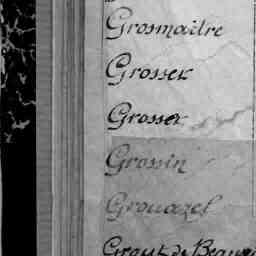 Grosmaitre
Grosser
Grosser
Grossin
Grouazel
Grout de